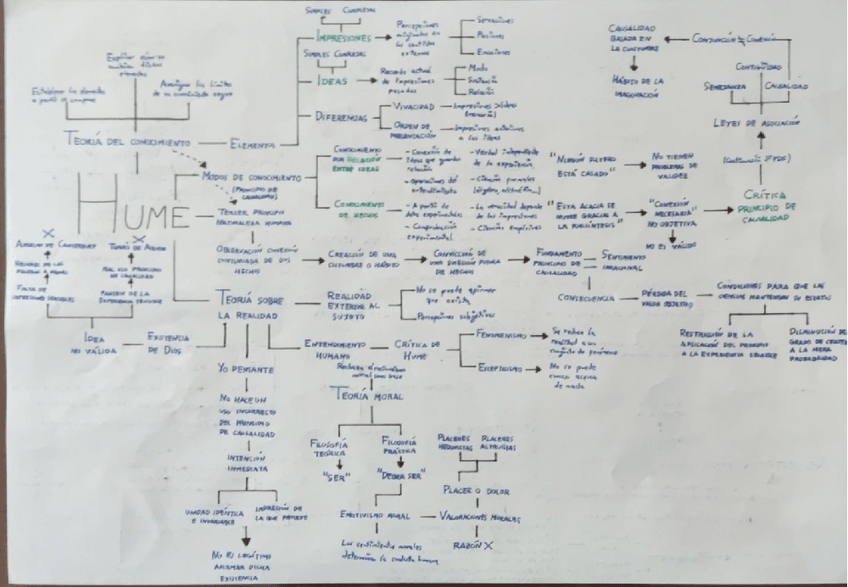 SIMPLES COMPLEJAS
IMPRESIONES
Percepciones
originadas en
los sentidos
externos
Sensaciones
Pasiones
Emociones
SIMPLES COMPLEJAS
IDEAS
Recuerdo actual
de impresiones
pasadas
Modo
Sustancia
Relación
DIFERENCIAS
VIVACIDAD
ORDEN DE
PRESENTACIÓN
Impresiones anteriores
a las ideas
Explicar cómo se
combinan dichos
elementos
Establecer los elementos
a partir de
Averiguar los límites
de
TEORÍA DEL CONOCIMIENTO
ELEMENTOS
HUME
MODOS DE CONOCIMIENTO
(PRINCIPIO DE
CAUSALIDAD)
CONOCIMIENTO
POR RELACIÓN
ENTRE IDEAS
- Conexión de
ideas que guardan
relación
- Operaciones del
entendimiento
- Verdad independiente
de la experiencia
- Ciencias formales
"NINGÚN SOLTERO
ESTÁ CASADO"
NO TIENEN
PROBLEMAS DE
VALIDEZ
CONOCIMIENTO
DE HECHOS
- A partir de
datos experimentales
- Comprobación
experimental
- La veracidad depende
de las impresiones
- Ciencias empíricas
"ESTA ACACIA SE
MUEVE GRACIAS A
LA FOTOSÍNTESIS"
"CONEXIÓN
NECESARIA"
NO OBJETIVA
NO ES VÁLIDO
CRÍTICA
PRINCIPIO DE
CAUSALIDAD
LEYES DE ASOCIACIÓN
SEMEJANZA
CONTIGÜIDAD
CAUSALIDAD
CONJUNCIÓN ≠ CONEXIÓN
CAUSALIDAD
BASADA EN
LA COSTUMBRE
HÁBITO DE LA
IMAGINACIÓN
TERCER PRINCIPIO
NATURALEZA HUMANA
OBSERVACIÓN CONEXIÓN
CONTINUADA DE DOS
HECHOS
CREACIÓN DE UNA
COSTUMBRE O HÁBITO
CONVICCIÓN DE
UNA SUCESIÓN FUTURA
DE HECHOS
FUNDAMENTO
PRINCIPIO DE
CAUSALIDAD
SENTIMIENTO
IRRACIONAL
CONSECUENCIA
PÉRDIDA DEL
VALOR OBJETIVO
CONDICIONES PARA QUE LAS
CIENCIAS MANTENGAN SU ESTATUS
RESTRICCIÓN DE LA
APLICACIÓN DEL PRINCIPIO
A LA EXPERIENCIA SENSIBLE
DISMINUCIÓN DEL
GRADO DE CERTEZA
A LA MERA
PROBABILIDAD
TEORÍA SOBRE
LA REALIDAD
REALIDAD
EXTERIOR AL
SUJETO
No se puede afirmar
que exista
Percepciones subjetivas
ENTENDIMIENTO
HUMANO
CRÍTICA DE
HUME
FENOMENISMO
Se reduce la
realidad a un
conjunto de fenómenos
ESCEPTICISMO
No se puede
conocer acerca
de nada
X
X
FALTA DE
IMPRESIONES SENSIBLES
PARTEN DE LA
EXPERIENCIA SENSIBLE
MAL USO PRINCIPIO
DE CAUSALIDAD
IDEA
NO VÁLIDA
EXISTENCIA
DE DIOS
YO PENSANTE
NO HACE UN
USO INCORRECTO
DEL PRINCIPIO
DE CAUSALIDAD
INTUICIÓN
INMEDIATA
UNIDAD IDÉNTICA
E INVARIABLE
IMPRESIÓN DE
LA QUE PROCEDE
NO ES LEGÍTIMO
AFIRMAR DICHA
EXISTENCIA
TEORÍA MORAL
FILOSOFÍA
TEÓRICA
"SER"
FILOSOFÍA
PRÁCTICA
"DEBER SER"
EMOTIVISMO MORAL
Los sentimientos morales
determinan la conducta humana
VALORACIONES MORALES
PLACERES
HEDONISTAS
PLACERES
ALTRUISTAS
PLACER O DOLOR
RAZÓN X